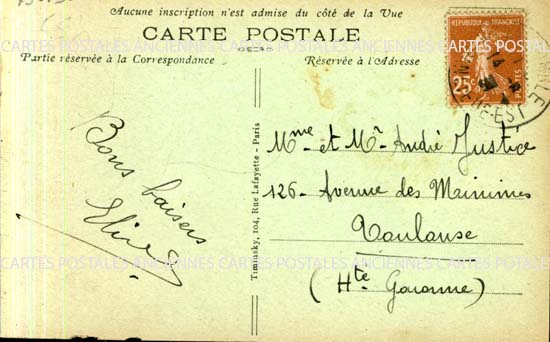 Aucune inscription n'est admise du côté de la Vue
CARTE POSTALE
Partie réservée à la Correspondance
Réservée à l'Adresse
REPUBLIQUE FRANÇAISE
25c
Bons baisers
Timinsky, 104, Rue Lafayette - Paris
Mme et Mr André Justice
126 - Avenue des Minimes
Toulouse
(Hte Garonne)
CARTES POSTALES ANCIENNES CARTES POSTALES ANCIENNES CARTES POSTALES
CARTES POSTALES ANCIENNES CARTES POSTALES ANCIENNES CARTES POSTALES